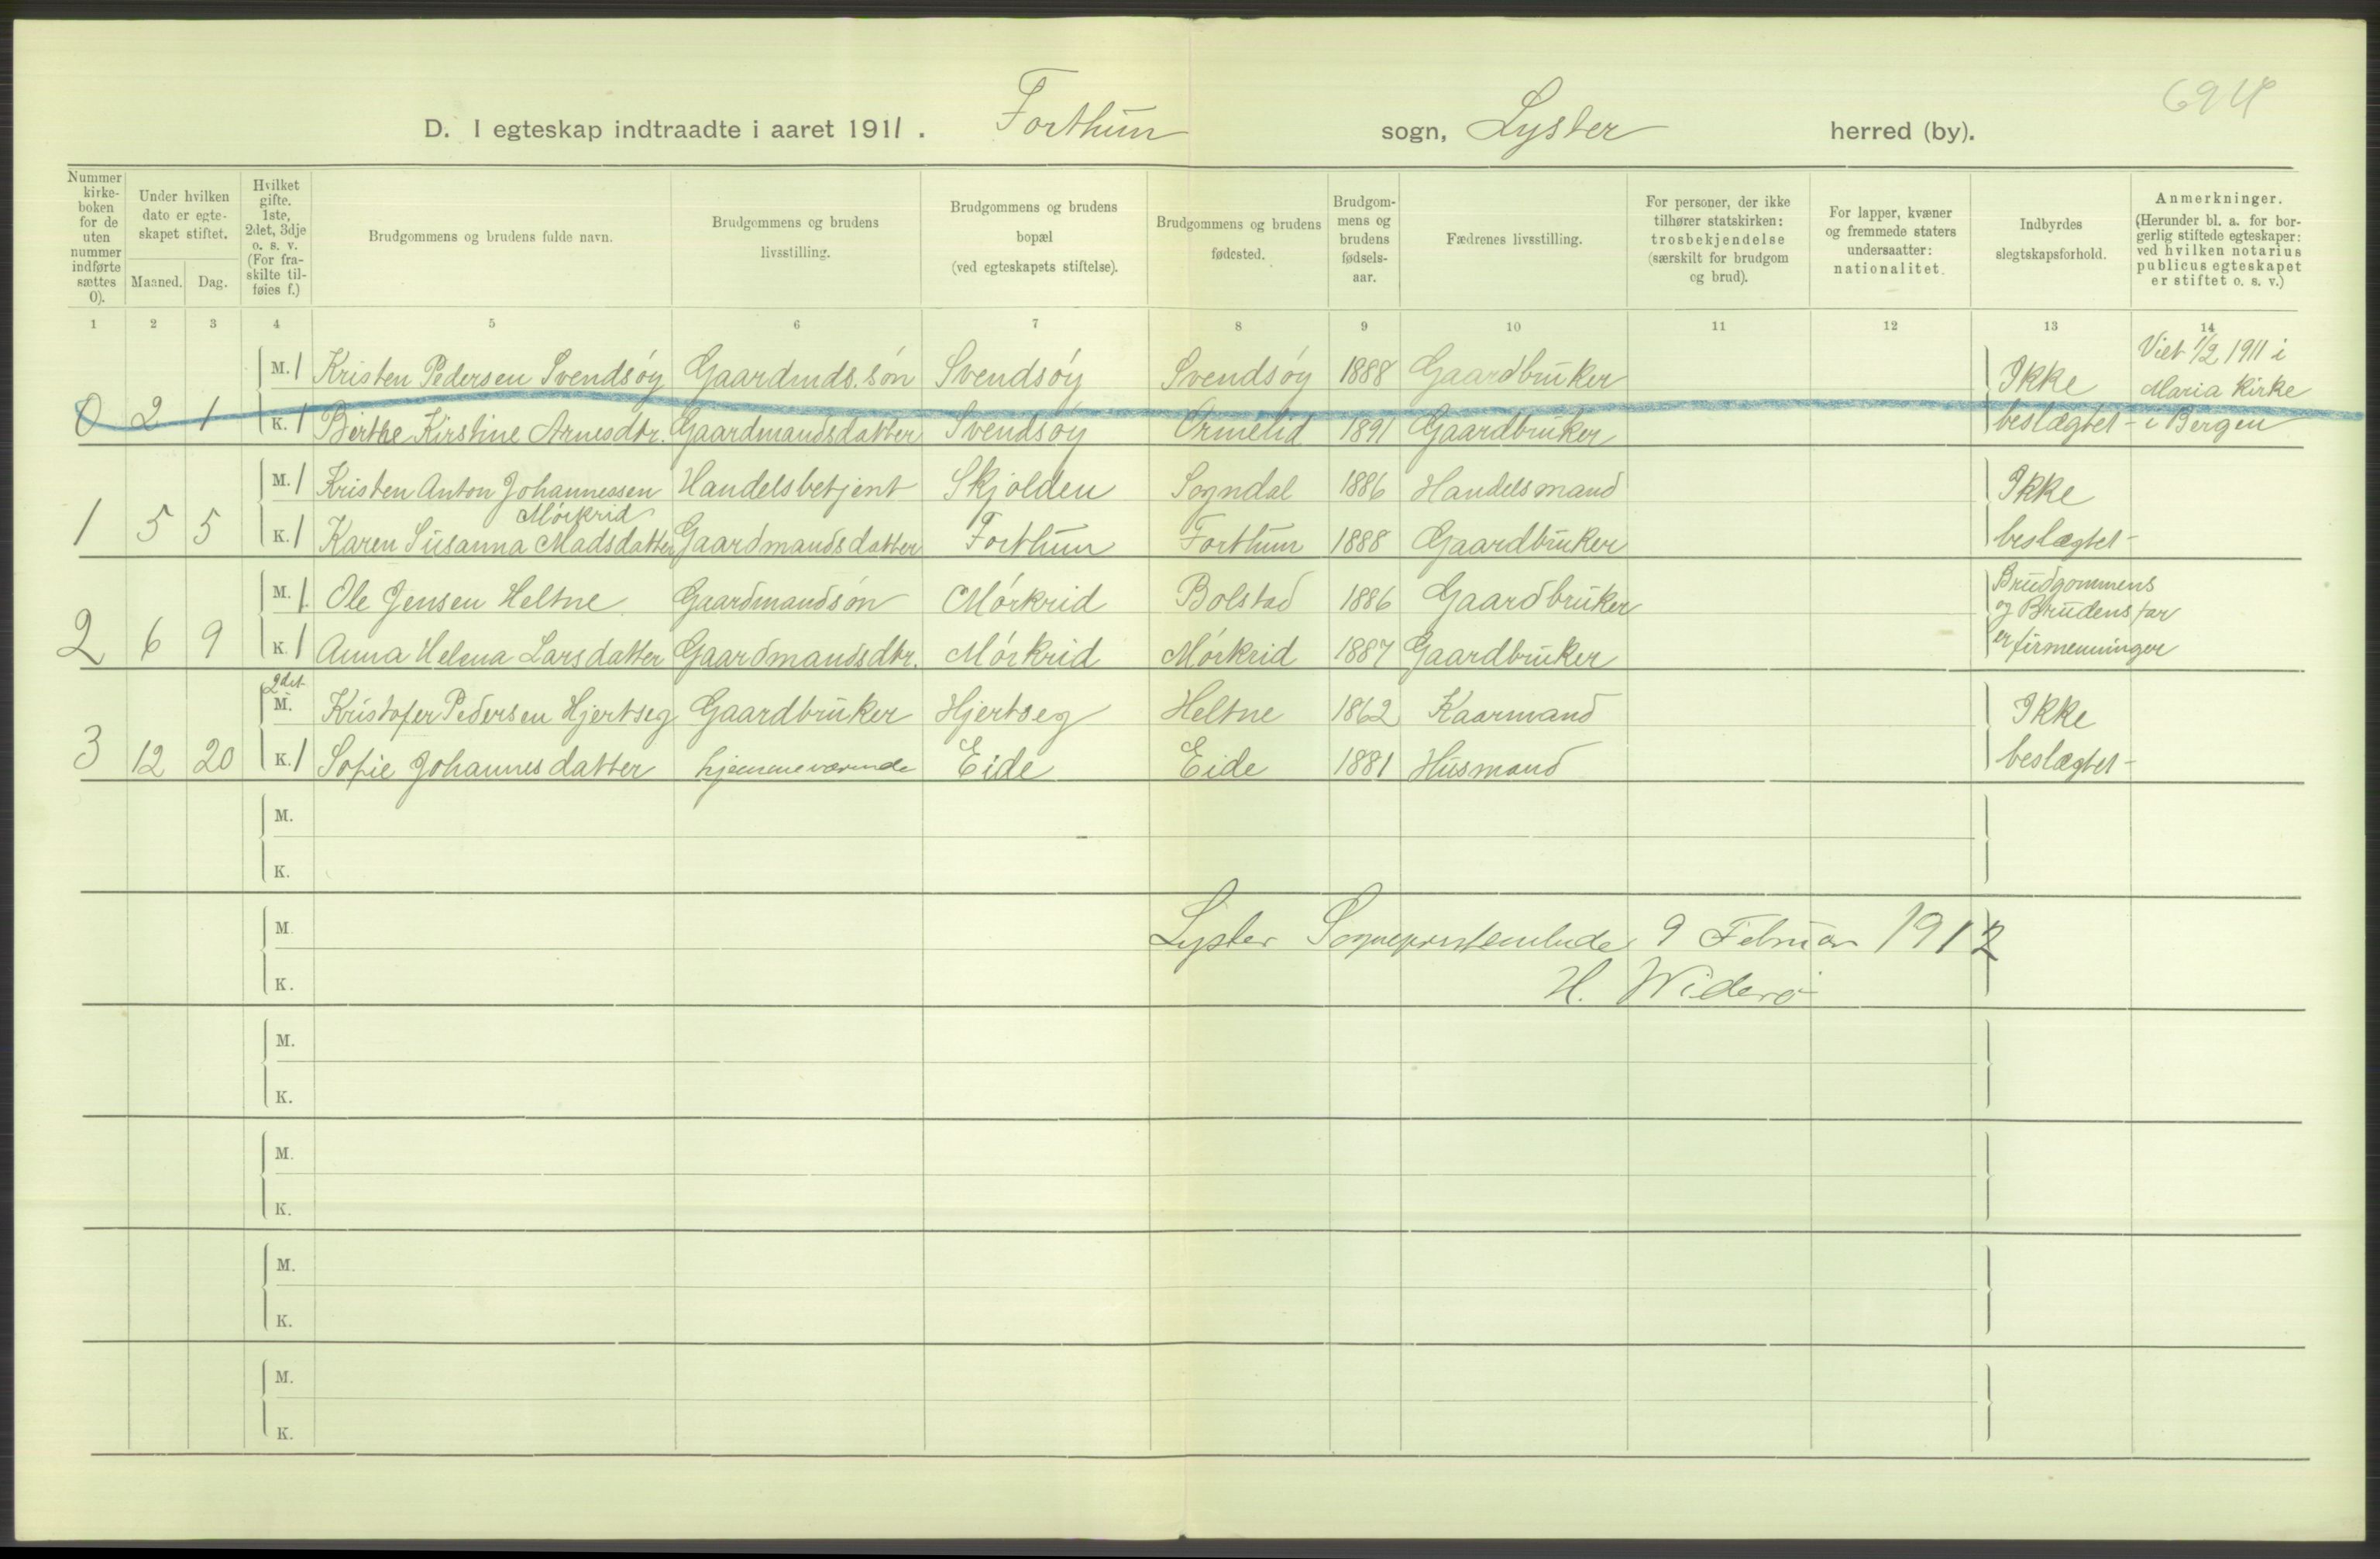 694
D. I egteskap indtraadte i aaret 1911. Forthun sogn, Lyster herred (by).
Nummer kirke-boken for de uten nummer indførte sættes 0).
Under hvilken dato er egte-skapet stiftet.
Maaned. Dag.
Hvilket gifte. 1ste, 2det, 3dje o. s. v. (For fra-skilte til-føies f.)
Brudgommens og brudens fulde navn.
Brudgommens og brudens livsstilling.
Brudgommens og brudens bopæl (ved egteskapets stiftelse).
Brudgommens og brudens fødested.
Brudgom-mens og brudens fødsels-aar.
Fædrenes livsstilling.
For personer, der ikke tilhører statskirken: trosbekjendelse (særskilt for brudgom og brud).
For lapper, kvæner og fremmede staters undersaatter: nationalitet.
Indbyrdes slegtskapsforhold.
Anmerkninger. (Herunder bl. a. for bor-gerlig stiftede egteskaper: ved hvilken notarius publicus egteskapet er stiftet o. s. v.)
1 2 3 4 5 6 7 8 9 10 11 12 13 14
M. 1 Kristen Pedersen Svendsøy Gaardmds.søn Svendsøy Svendsøy 1888 Gaardbruker Ikke Viet 1/2 1911 i Maria Kirke
0 2 1 K. 1 Birthe Kirstine Arnesdtr. Gaardmandsdatter Svendsøy Ormelid 1891 Gaardbruker beslægtet - i Bergen
M. 1 Kristen Anton Johannessen Handelsbetjent Skjolden Sogndal 1886 Handelsmand Ikke
Mørkrid
1 5 5 K. 1 Karen Susanna Madsdatter Gaardmandsdatter Forthun Forthun 1888 Gaardbruker beslægtet -
M. 1. Ole Jensen Heltne Gaardmandsøn Mørkrid Bolstad 1886 Gaardbruker Brudgommens og Brudens far
2 6 9 K. 1 Anna Helena Larsdatter Gaardmandsdtr. Mørkrid Mørkrid 1887 Gaardbruker er firmenninger
2det
M. Kristofer Pedersen Hjertseg Gaardbruker Hjertseg Heltne 1862 Kaarmand Ikke
3 12 20 K. 1 Sofie Johannesdatter hjemmeværende Eide Eide 1881 Husmand beslægtet -
M.
K.
M. Lyster Sogneprestembede 9 Februar 1912
K. H. Widerø
M.
K.
M.
K.
M.
K.
M.
K.